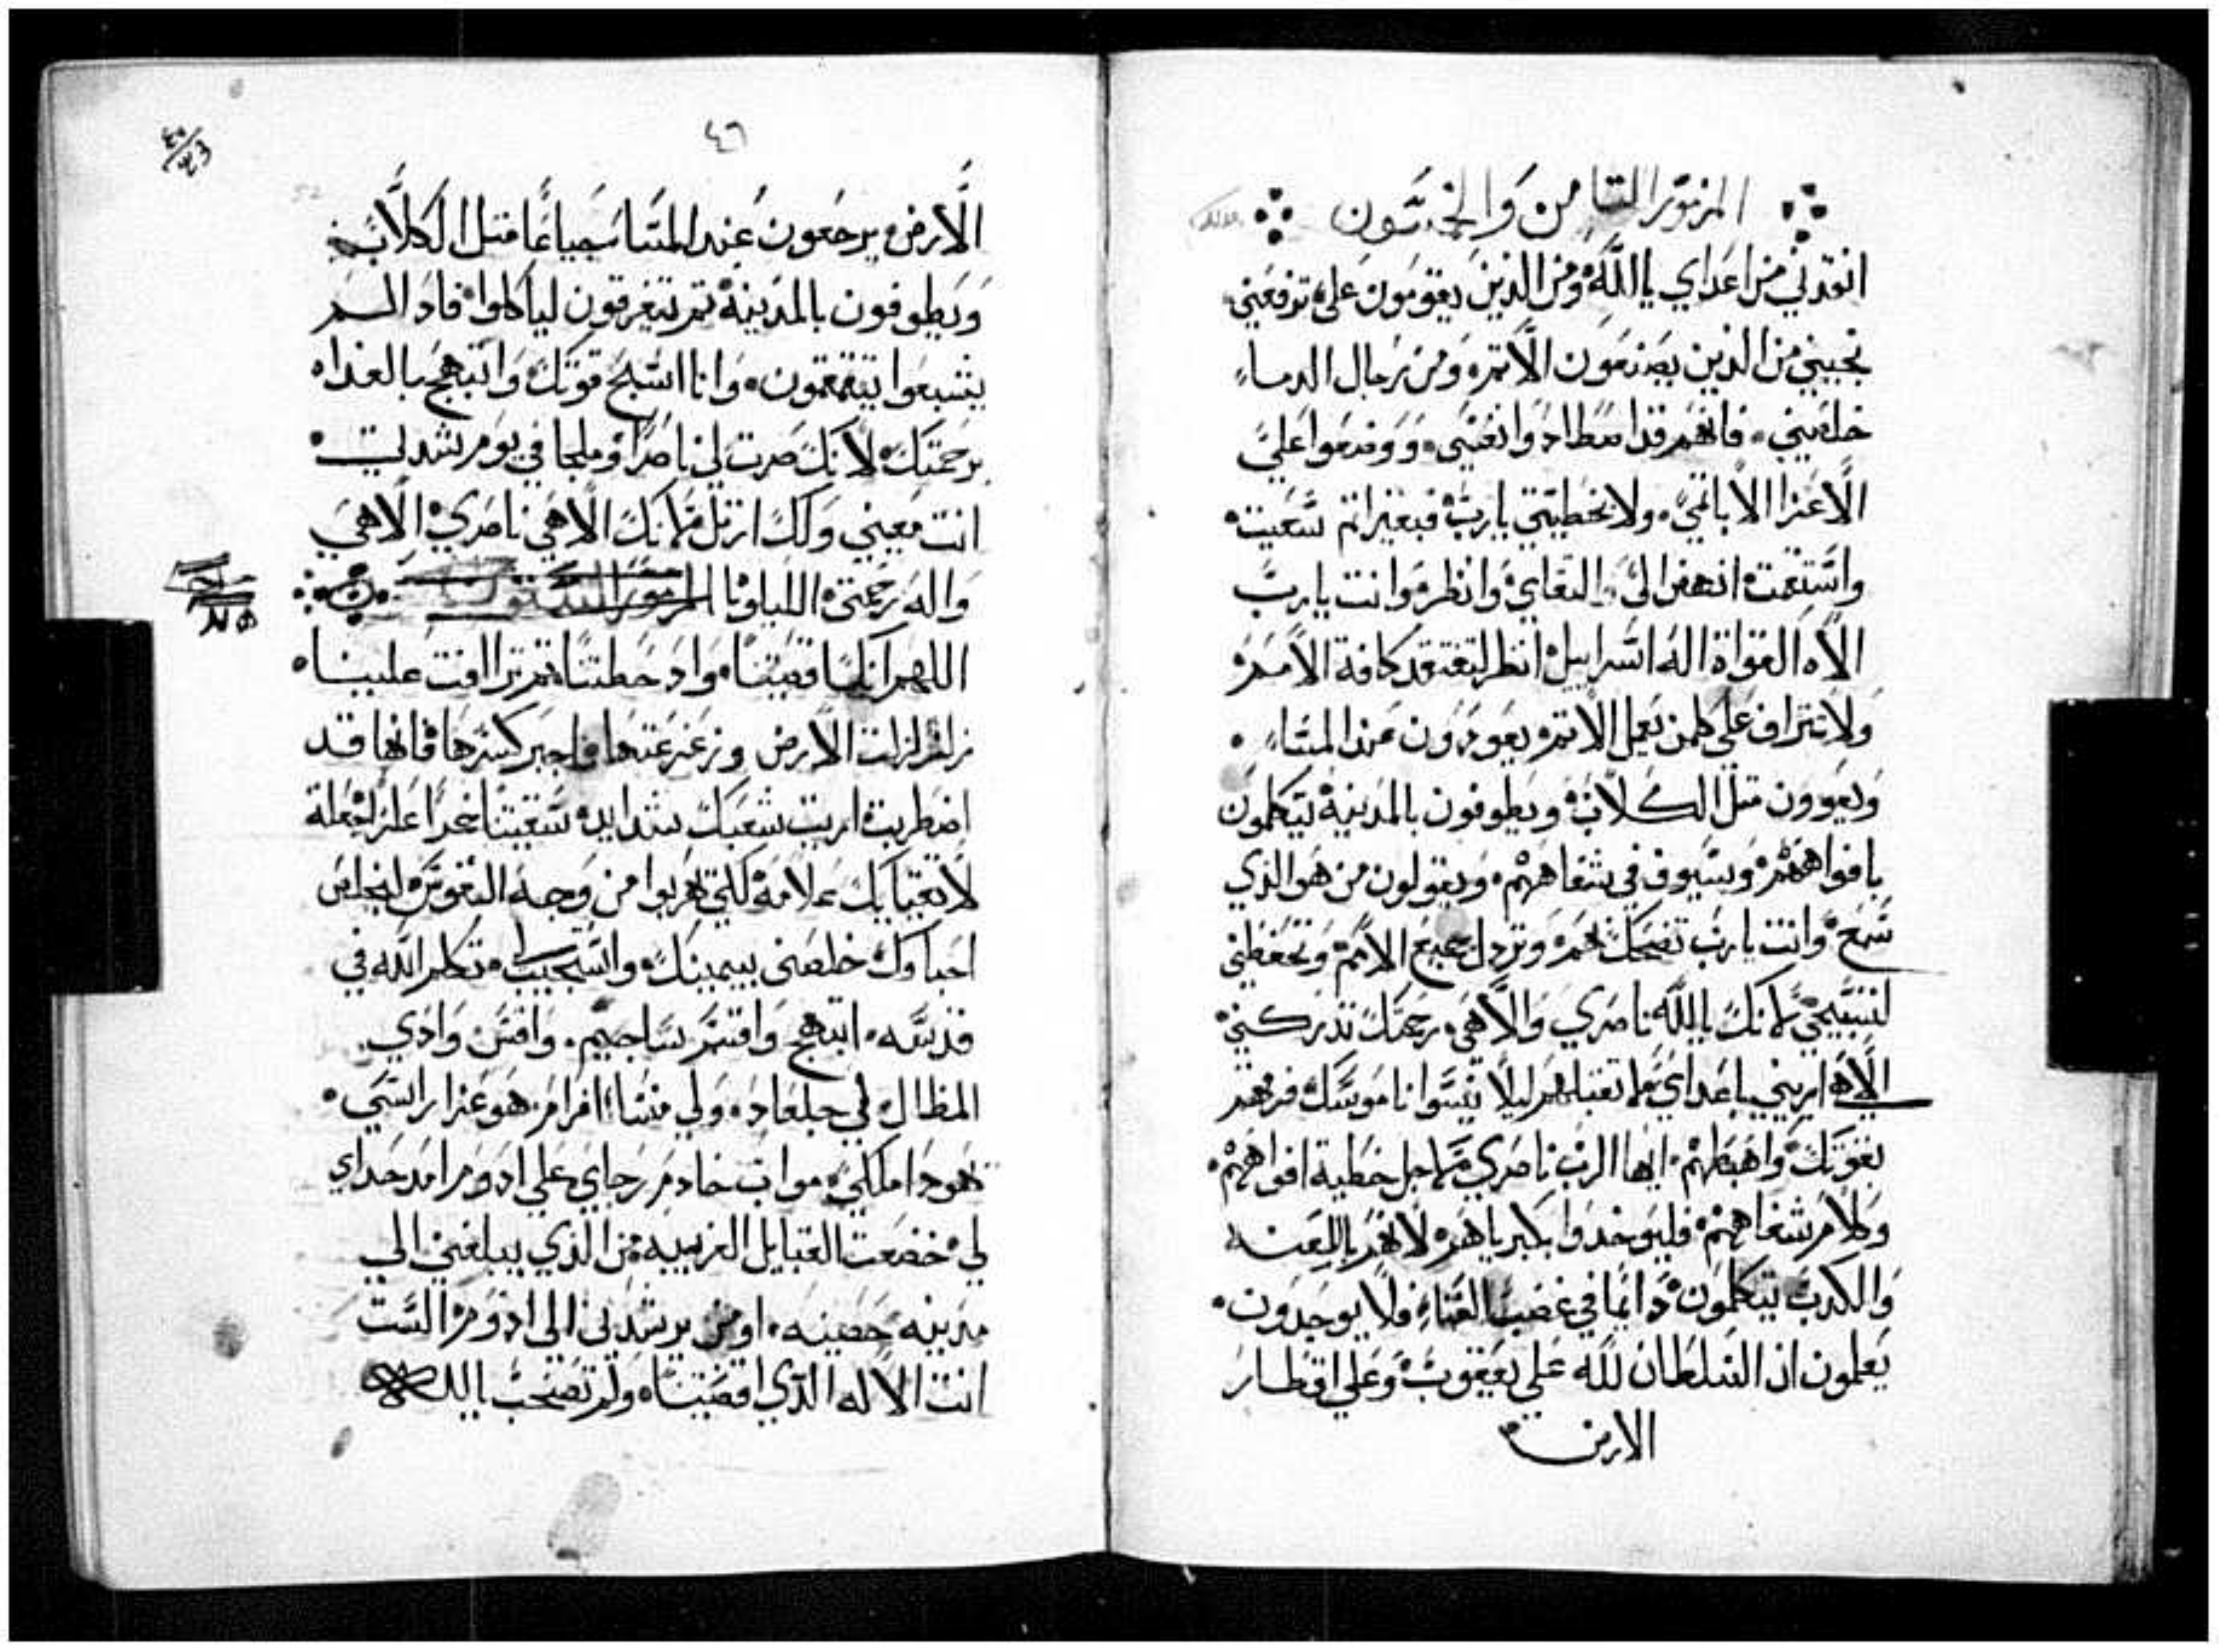 المزمور التامن والخمسون
انقدني من اعداي ياالله ومن الذين يقومون علي ترفعني
نجيني من الذين يصنعون الاتم ومن رجال الدماء
خلصني فانهم قد اصطادوا نفسي ووقعوا علي
الاعزا لا باتمي ولا بخطيتي يارب فبغير اتم سعيت
واستقمت انهض الي والتقاي وانظر وانت يارب
الاه القواة اله اسراييل انظر لتفتقد كافة الامم
ولا تتراف علي كلمن يعمل الاتم يعودون عند المساء
ويعوون متل الكلاب ويطوفون بالمدينة يتكلمون
بافواههم وسيوف في شفاههم ويقولون من هو الذي
سمع وانت يارب تضحك بهم وتردل جميع الامم وتحفظني
لتسبيحي لانك ياالله ناصري والاهي رحمتك تدركني
الاهي اريني باعداي لا تقتلهم ليلا ينسوا ناموسك فرقهم
بقوتك واهبطهم ايها الرب ناصري لاجل خطية افواههم
وكلام شفاههم فليوخدوا بكبرياهم لانهم باللعنه
والكدب يتكلمون دايما في غضب الفناء فلا يوجدون
يعلمون ان السلطان لله علي يعقوب وعلي اقطار
الارض
٤٦
الارض يرجعون عند المسا جياعا متل الكلاب
ويطوفون بالمدينة تم يتفرقون لياكلوا فادا لم
يشبعوا يتقمقمون وانا اسبح قوتك وابتهج بالغداه
برحمتك لانك صرت لي ناصرا وملجا في يوم شدتي
انت معيني ولك ارتل لانك الاهي ناصري الاهي
واله رحمتي الليلويا المزمور الستون
اللهم انك اقصيتنا وادحضتنا تم ترافت علينا
زلزلت الارض وزعزعتها فاجبر كسرها فانها قد
اضطربت اريت شعبك شدايد سقيتنا خمرا
لاتقيايك علامة لكي يهربوا من وجه القوس لينجا
احباوك خلصني بيمينك واستجيب تكلم الله في
قدسه ابتهج واقسم ساجيم واقس وادي
المظال لي جلعاد ولي منسا افرام هو عزا راسي
يهودا ملكي مواب خادم رجاي علي ادوم امد حداي
لي خضعت القبايل الغريبه من الذي يبلغني الي
مدينه حصينه او من يرشدني الي ادوم الست
انت الاله الذي اقصيتنا ولم تصحب ياالله